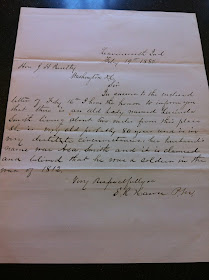 Feby 19th 1880
Hon. J. H.
Washington
Sir
In answer to the enclosed
letter of Feby 16th I have the honor to inform you
that there is an old lady named
Smith living about six miles from this place
She is very old probably 80 years and is in
very destitute circumstances, her husbands
name was Asa Smith and it is claimed
and believed that he was a soldier in the
war of 1812.
Very Respectfully
P.M.